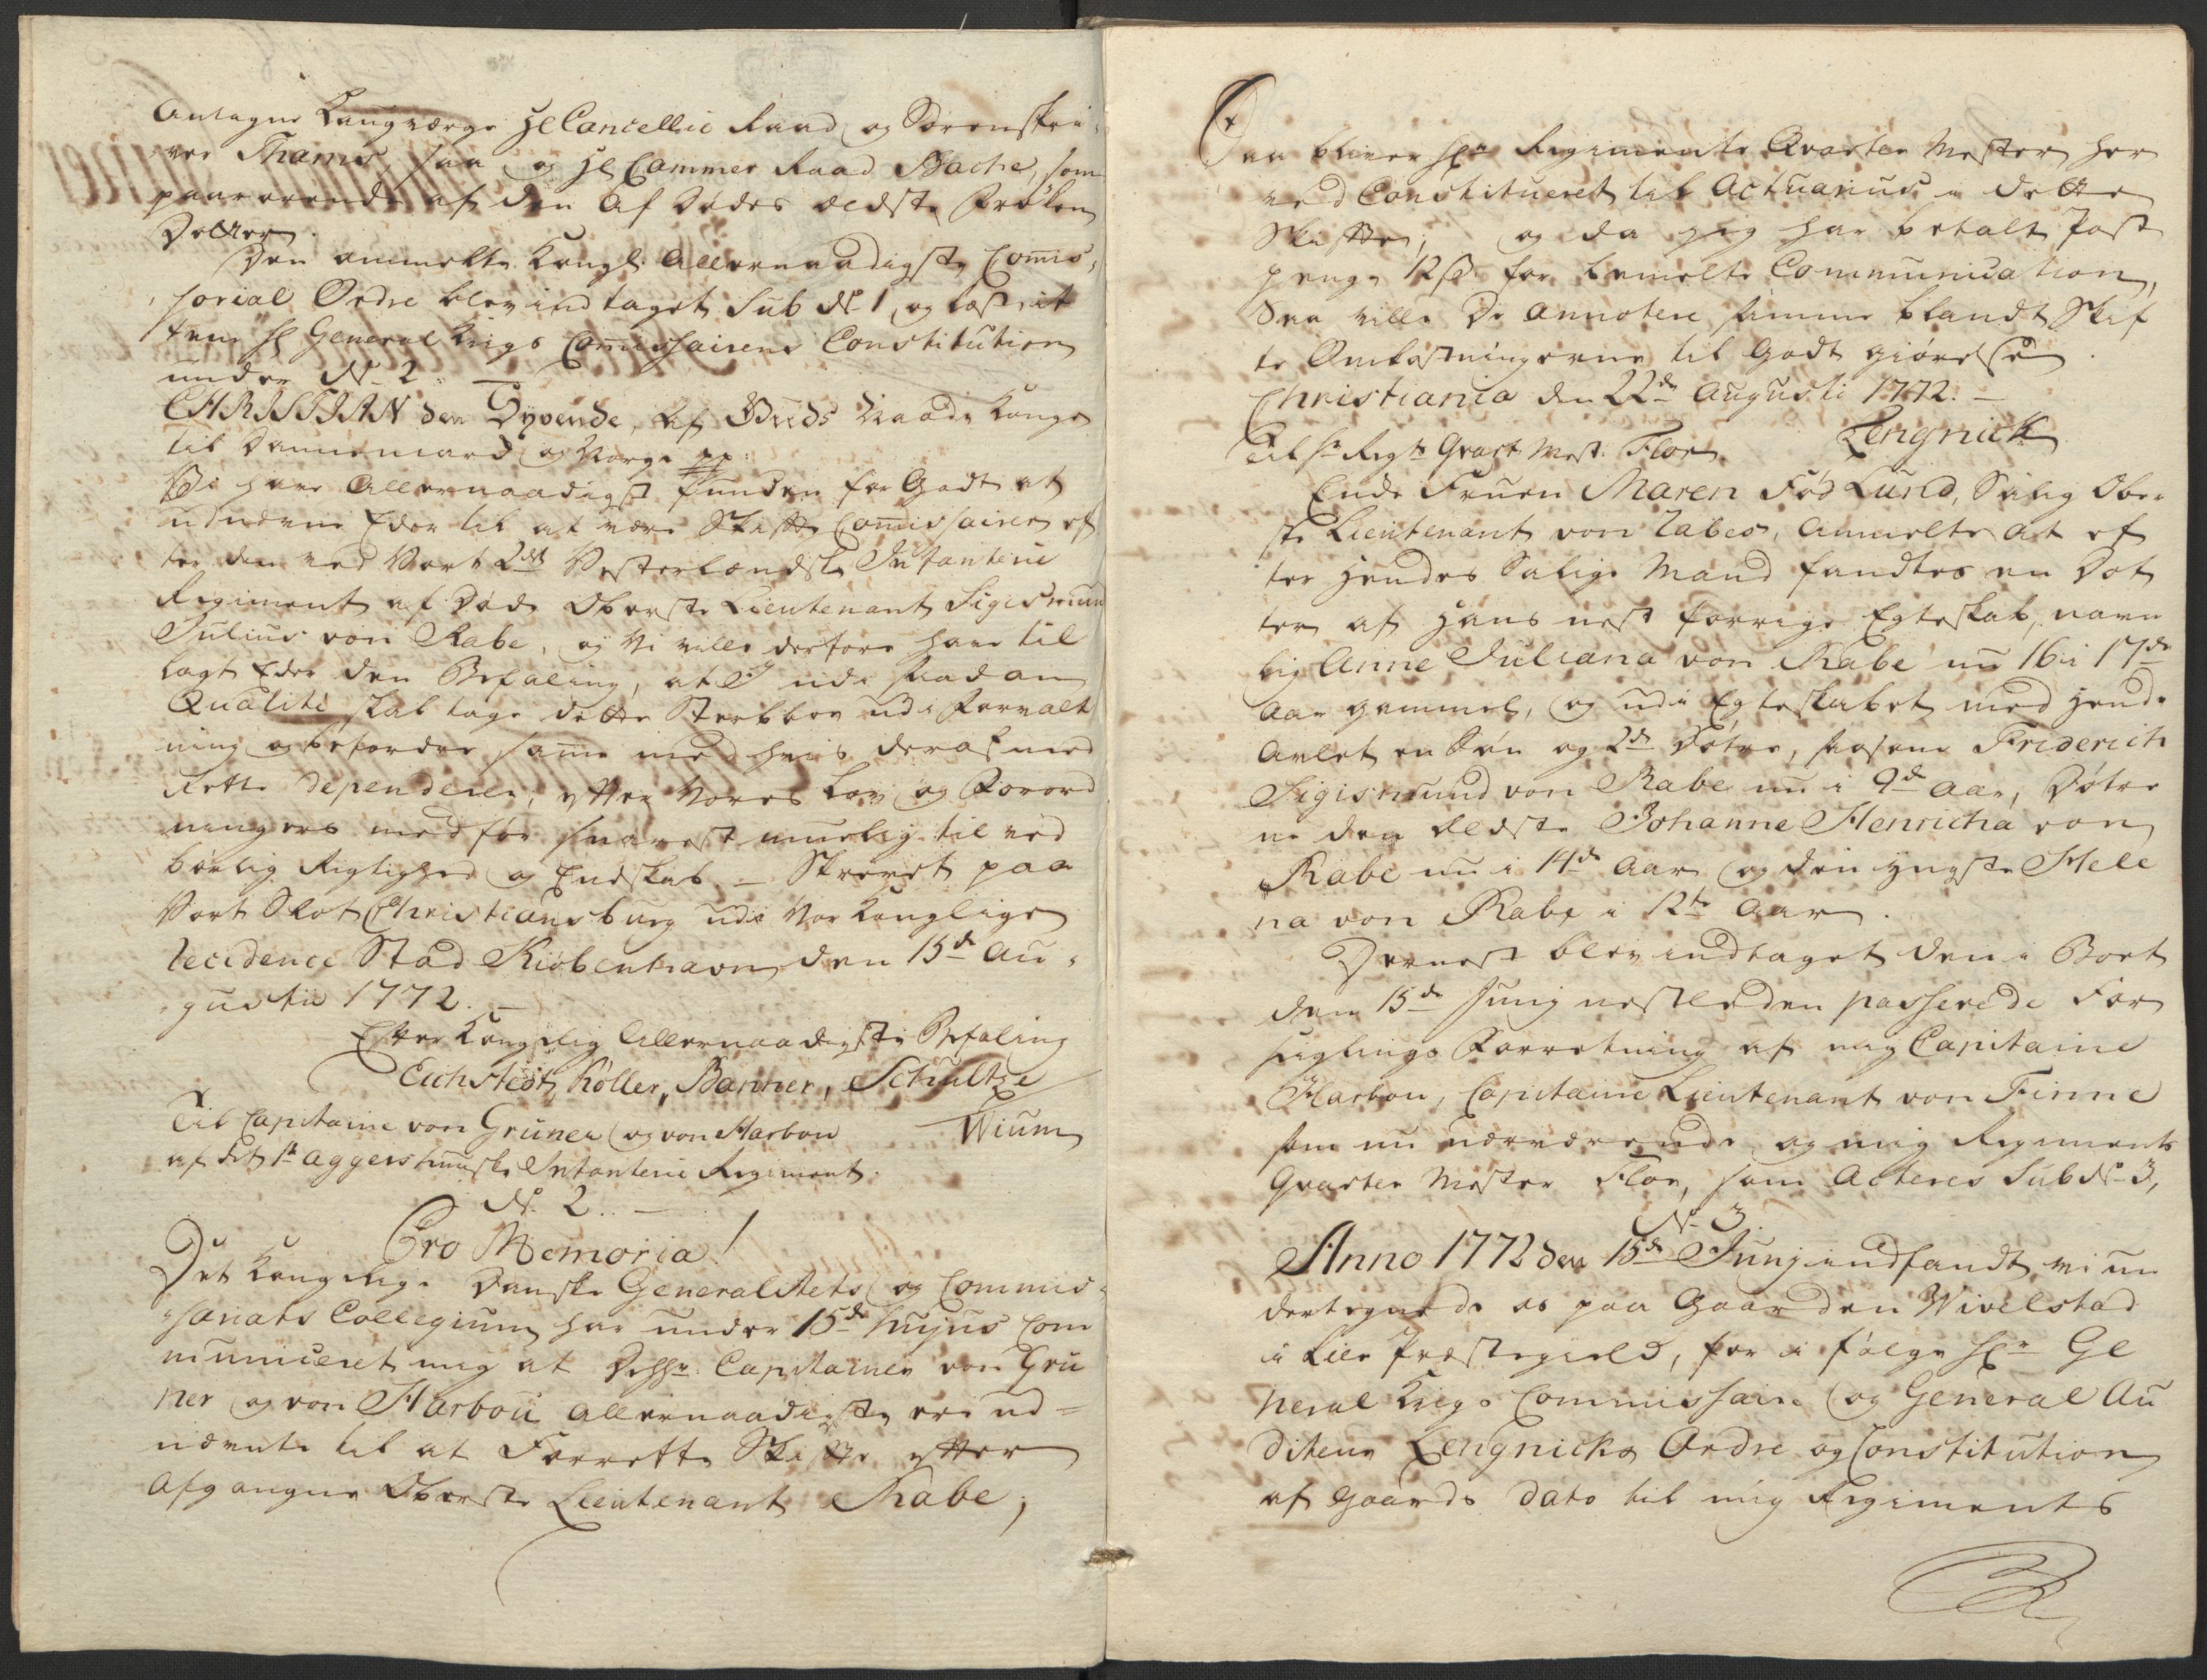 antagne Laugværge Hl Cancellie Raad og Sorenskri-
ver Thams, saa og Hl Cammer Raad Bache, som
paarørende af den Afdødes ældste Frøken
Dotter.
Den anmelte Kongl: Allernaadigste Comis-
sorial Ordre blev indtaget Sub No 1, og
Hr General Krigs Comissairens Constitution
under No 2.
CHRISTIAN den Syvende, af Guds Naade Konge
til Dannemark og Norge pp:
Vi have Allernaadigst funden for Godt at
udnævne Eder til at være Skifte Comissairer ef
ter den ved Vort 2det Vesterlendske Infanterie
Regiment afdøde Oberste Lieutenant Sigismun
Julius von Rabe, og Vi ville derfore have til
lagt Eder den Befaling, at I udi saadan
Qualité skal tage dette Sterbboe udi Forvalt
ning og befordre samme med hvis deraf med
Rette dependerer, efter Vores Lov og Forord
ningers medfør snarest muelig til ved
børlig Rigtighed og Endskab – Skrevet paa
Vort Slot Christiansburg udi Vor Kongelige
Recidence Stad Kiøbenhavn den 15de Au-
gustii 1772. –
Efter Kongelig Allernaadigste Befaling
Eichstedt, Köller, Banner, Schultze
Til Capitaine von Grüner og von Harbou Wium
af det 1te Aggershuuske Infanterie Regiment.
No 2. –
Pro Memoria!
Det Kongelige Danske Generalitets og Commis-
sariats Collegium har under 15de hujus Com
municeret mig at Dhhr: Capitainer von Grü
ner og von Harbou Allernaadigste ere ud=
nævnte til at Forrette Skifte efter
Afgangne Oberste Lieutenant Rabe;
Saa bliver Hr Regiments Qvarteer Mester her
ved Constitueret til Actuarius i dette
Skifte; og da jeg har betalt Post
penge 12 s. for bemelte Communication,
Saa ville De annotere samme blandt Skif
te Omkostningerne til Godtgiørelse.
Christiania den 22de Augusti 1772. –
Til Hr Regts Qvart: Mest: Flor Lengnick
Enke Fruen Maren Fød Lund, Salig Ober
ste Lieutenant von Rabes, anmelte at ef
ter Hendes Salige Mand fandtes en Dot
ter af Hans nest forrige Egteskab, navn
lig Anne Juliana von Rabe nu 16 i 17de
Aar gammel, og udi Egteskabet med Hende
Avlet en Søn og 2de Døtre, Friderich
Sigismund von Rabe nu i 9de Aar, Døtre
ne den eldste Johanne Henricha von
Rabe nu i 14de Aar og den yngste Hele
na von Rabe i 12te Aar.
Dernest blev indtaget den i Boet
den 15de Junij nestleden passerede For
seglings Forretning af mig Capitaine
Harbou, Capitaine Lieutenant von Finne
som nu nærværende og mig Regiments
Qvarteer Mester Flor, som Acteres Sub No 3,
No 3.
Anno 1772 den 15de Junij indfandt vi un
dertegnede os paa Gaarden Wivelstad
i Lier Præstegield, for i følge Hr Ge
neral Krigs Commissaire og General Au
diteur Lengnicks Ordre og Constitution
af Gaards dato til mig Regiments